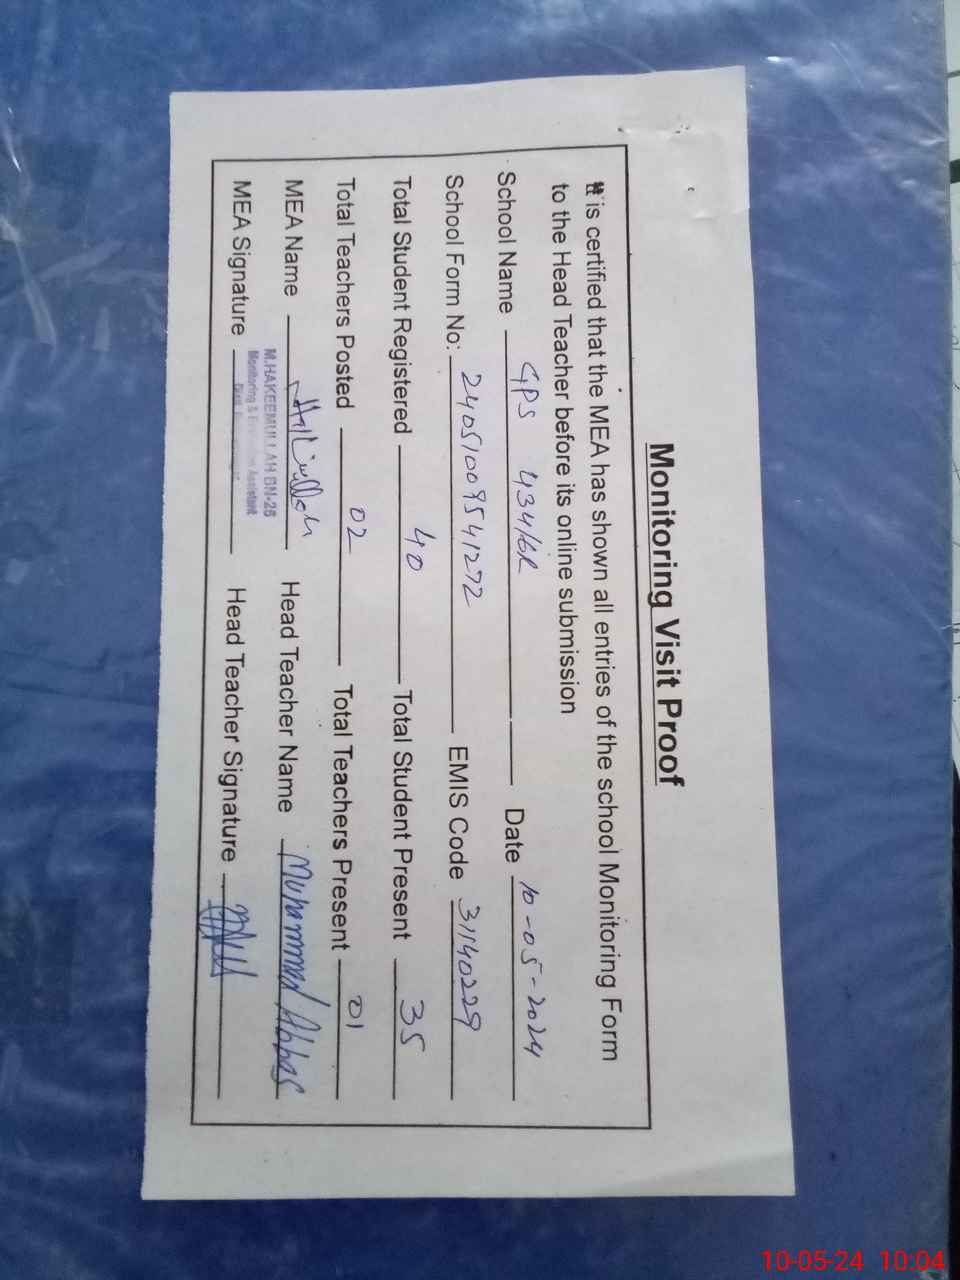 Monitoring Visit Proof
It is certified that the MEA has shown all entries of the school Monitoring Form
to the Head Teacher before its online submission
School Name GPS 434/6R Date 10-05-2024
School Form No: 24051009541272 EMIS Code 31140229
Total Student Registered 40 Total Student Present 35
Total Teachers Posted 02 Total Teachers Present 01
MEA Name Head Teacher Name Muhammad Abbas
M.HAKEEMULLAH BN-26
Monitoring & Assistant
MEA Signature Head Teacher Signature
10-05-24 10:04